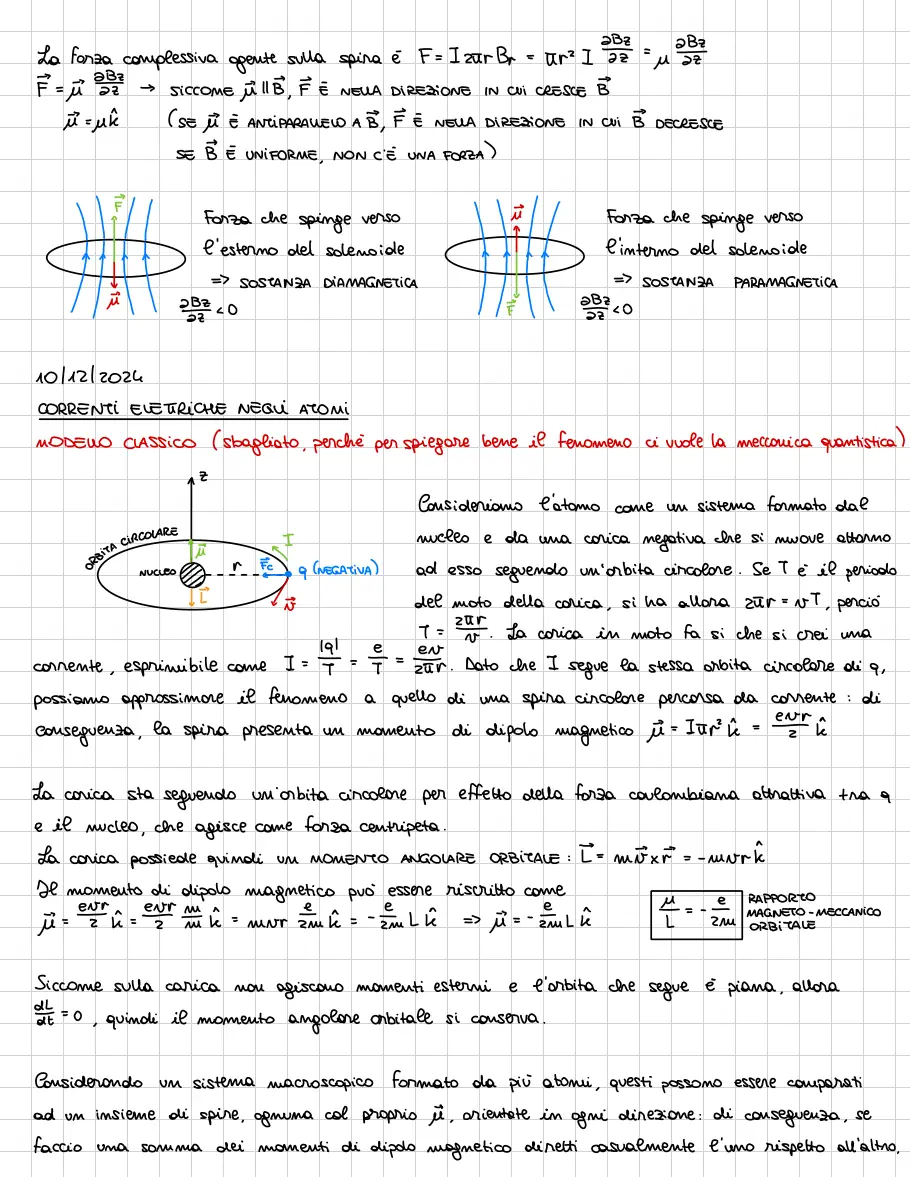 La forza complessiva agente sulla spira è F = I 2πr Br = πr² I ∂Bz/∂z = μ ∂Bz/∂z
F⃗ = μ⃗ ∂Bz/∂z → SICCOME μ⃗ ∥ B⃗, F⃗ È NELLA DIREZIONE IN CUI CRESCE B⃗
μ⃗ = μk̂ (SE μ⃗ È ANTIPARALLELO A B⃗, F⃗ È NELLA DIREZIONE IN CUI B⃗ DECRESCE
SE B⃗ È UNIFORME, NON C'È UNA FORZA)
F⃗
μ⃗
Forza che spinge verso
l'esterno del solenoide
=> SOSTANZA DIAMAGNETICA
∂Bz/∂z < 0
μ⃗
F⃗
Forza che spinge verso
l'interno del solenoide
=> SOSTANZA PARAMAGNETICA
∂Bz/∂z < 0
10/12/2024
CORRENTI ELETTRICHE NEGLI ATOMI
MODELLO CLASSICO (sbagliato, perché per spiegare bene il fenomeno ci vuole la meccanica quantistica)
z
ORBITA CIRCOLARE
μ⃗
I
NUCLEO
r
F⃗c
q (NEGATIVA)
L⃗
v⃗
Consideriamo l'atomo come un sistema formato dal
nucleo e da una carica negativa che si muove attorno
ad esso seguendo un'orbita circolare. Se T è il periodo
del moto della carica, si ha allora 2πr = vT, perciò
T = 2πr/v. La carica in moto fa sì che si crei una
corrente, esprimibile come I = |q|/T = e/T = ev/2πr. Dato che I segue la stessa orbita circolare di q,
possiamo approssimare il fenomeno a quello di una spira circolare percorsa da corrente : di
conseguenza, la spira presenta un momento di dipolo magnetico μ⃗ = Iπr² k̂ = evr/2 k̂
La carica sta seguendo un'orbita circolare per effetto della forza coulombiana attrattiva tra q
e il nucleo, che agisce come forza centripeta.
La carica possiede quindi un MOMENTO ANGOLARE ORBITALE : L⃗ = mv⃗ x r⃗ = -mvr k̂
Il momento di dipolo magnetico può essere riscritto come
μ⃗ = evr/2 k̂ = evr/2 m/m k̂ = mvr e/2m k̂ = - e/2m L k̂ => μ⃗ = - e/2m L k̂
μ/L = - e/2m
RAPPORTO
MAGNETO-MECCANICO
ORBITALE
Siccome sulla carica non agiscono momenti esterni e l'orbita che segue è piana, allora
dL/dt = 0 , quindi il momento angolare orbitale si conserva.
Considerando un sistema macroscopico formato da più atomi, questi possono essere comparati
ad un insieme di spire, ognuna col proprio μ⃗, orientate in ogni direzione: di conseguenza, se
faccio una somma dei momenti di dipolo magnetico diretti casualmente l'uno rispetto all'altro,